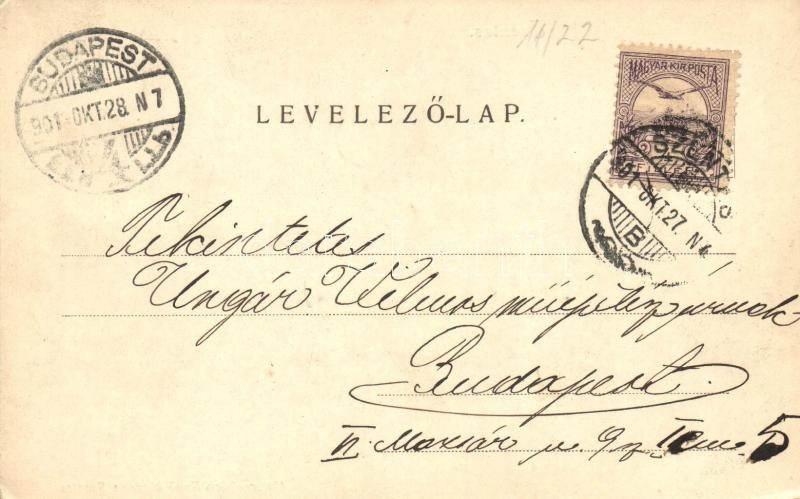 11/22
BUDAPEST
901 OKT. 28. N 7
LEVELEZŐ-LAP.
MAGYAR KIR. POSTA
SZENTES
901 OKT. 27. N
B
Tekintetes
Ungár Vilmos műépítész úrnak
Budapest
VI. Mozsár u. 9 sz. I em. 5